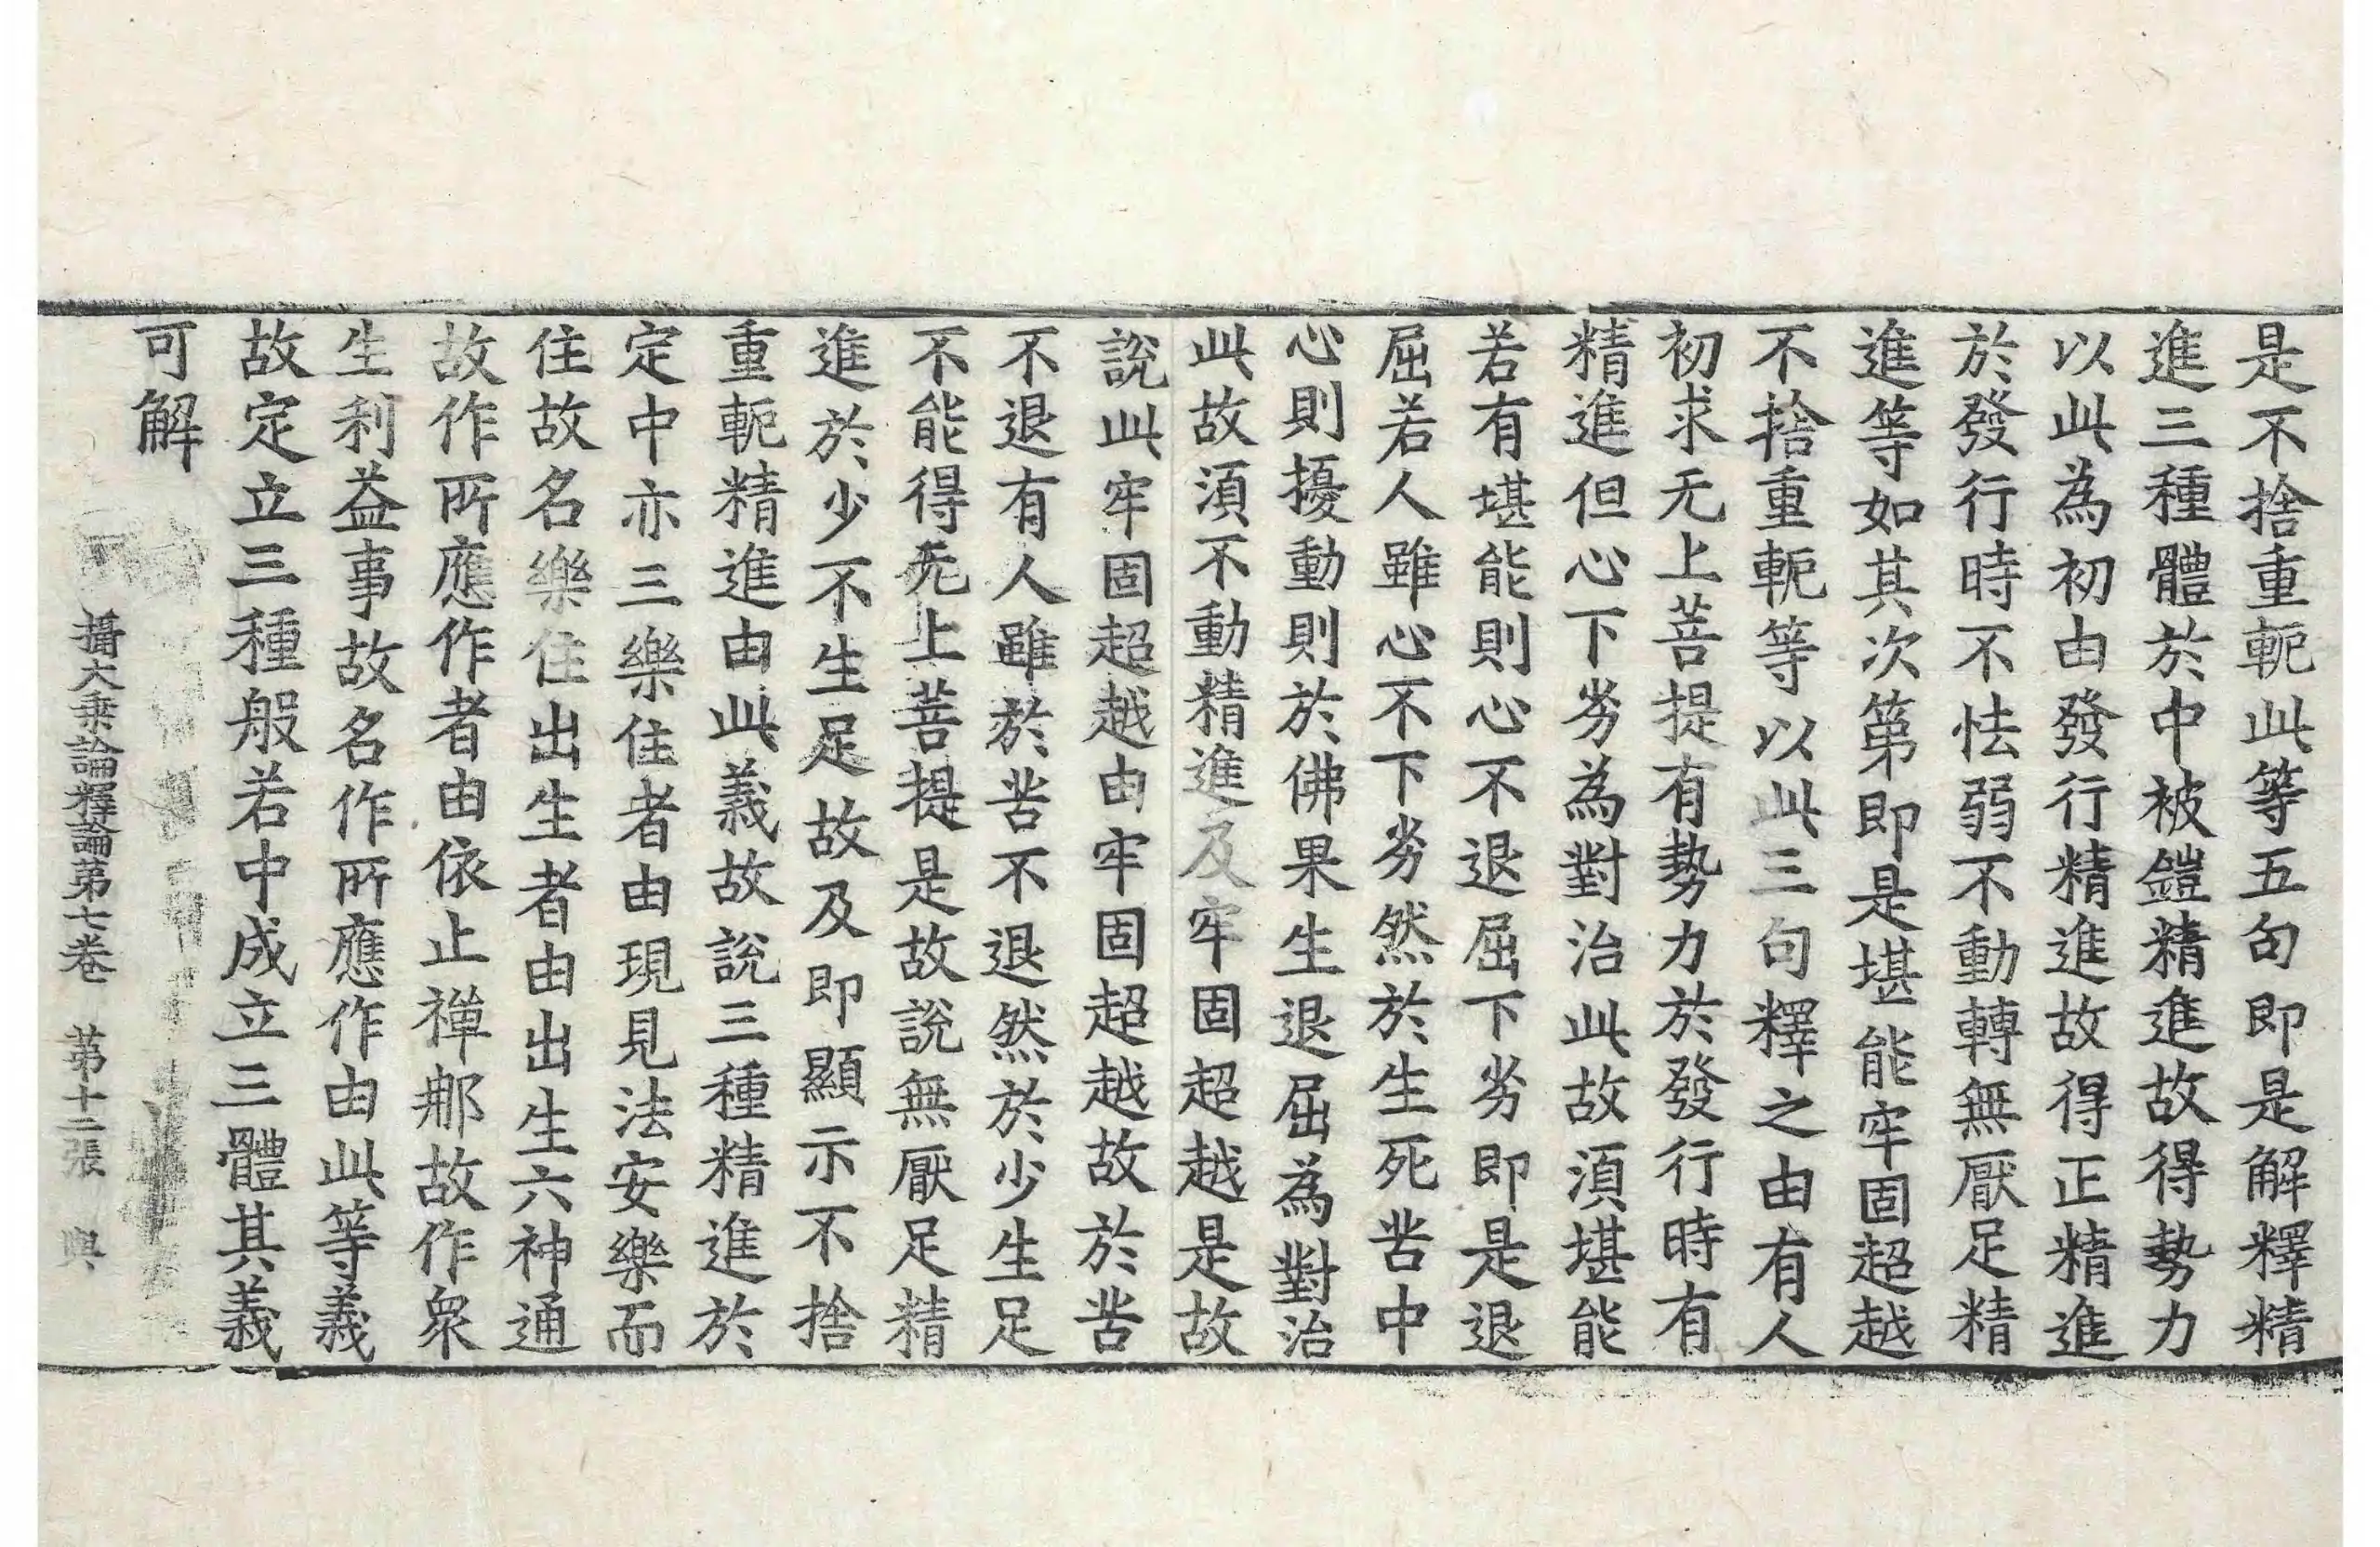 是不捨重軛此等五句即是解釋精
進三種體於中被鎧精進故得勢力
以此為初由發行精進故得正精進
於發行時不怯弱不動轉無厭足精
進等如其次第即是堪能牢固超越
不捨重軛等以此三句釋之由有人
初求无上菩提有勢力於發行時有
精進但心下劣為對治此故須堪能
若有堪能則心不退屈下劣即是退
屈若人雖心不下劣然於生死苦中
心則擾動則於佛果生退屈為對治
此故須不動精進及牢固超越是故
說此牢固超越由牢固超越故於苦
不退有人雖於苦不退然於少生足
不能得无上菩提是故說無厭足精
進於少不生足故及即顯示不捨
重軛精進由此義故說三種精進於
定中亦三樂住者由現見法安樂而
住故名樂住出生者由出生六神通
故作所應作者由依止禪那故作眾
生利益事故名作所應作由此等義
故定立三種般若中成立三體其義
可解
攝大乘論釋論第七卷 第十二張 輿